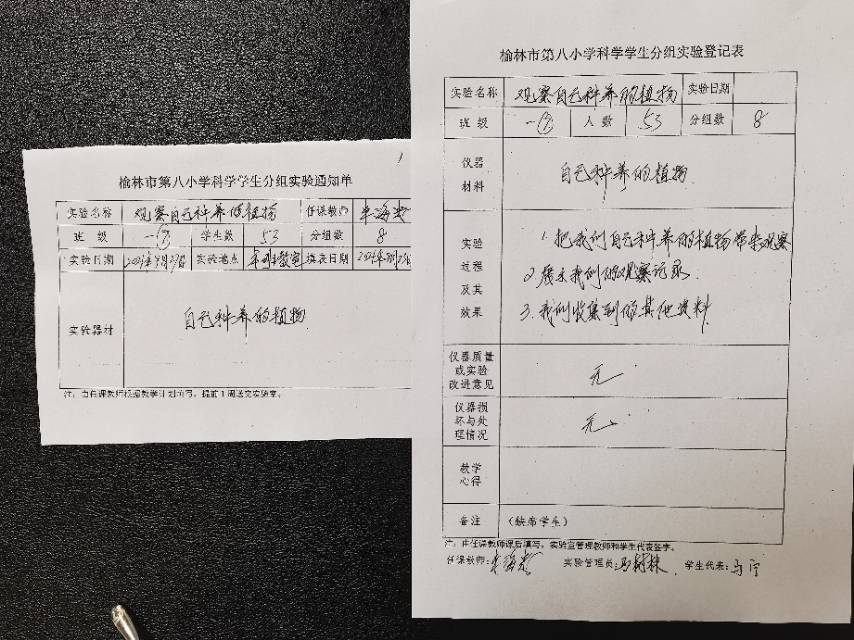 榆林市第八小学科学学生分组实验通知单
实验名称 观察自己种养的植物 任课教师
班级 一⑦ 学生数 53 分组数 8
实验日期 实验地点 教室 填表日期
实验器材 自己种养的植物
注：由任课教师根据教学计划填写，提前1周送交实验室。
榆林市第八小学科学学生分组实验登记表
实验名称 观察自己种养的植物 实验日期
班级 一⑦ 人数 53 分组数 8
仪器材料 自己种养的植物
实验过程及其效果 1.把我们自己种养的植物带来观察
2.展示我们的观察记录
3.我们收集到的其他资料
仪器质量或实验改进意见 无
仪器损坏与处理情况 无
教学心得
备注 （缺席学生）
注：由任课教师课后填写，实验室管理教师和学生代表签字。
任课教师： 实验管理员：冯树林 学生代表：马宁